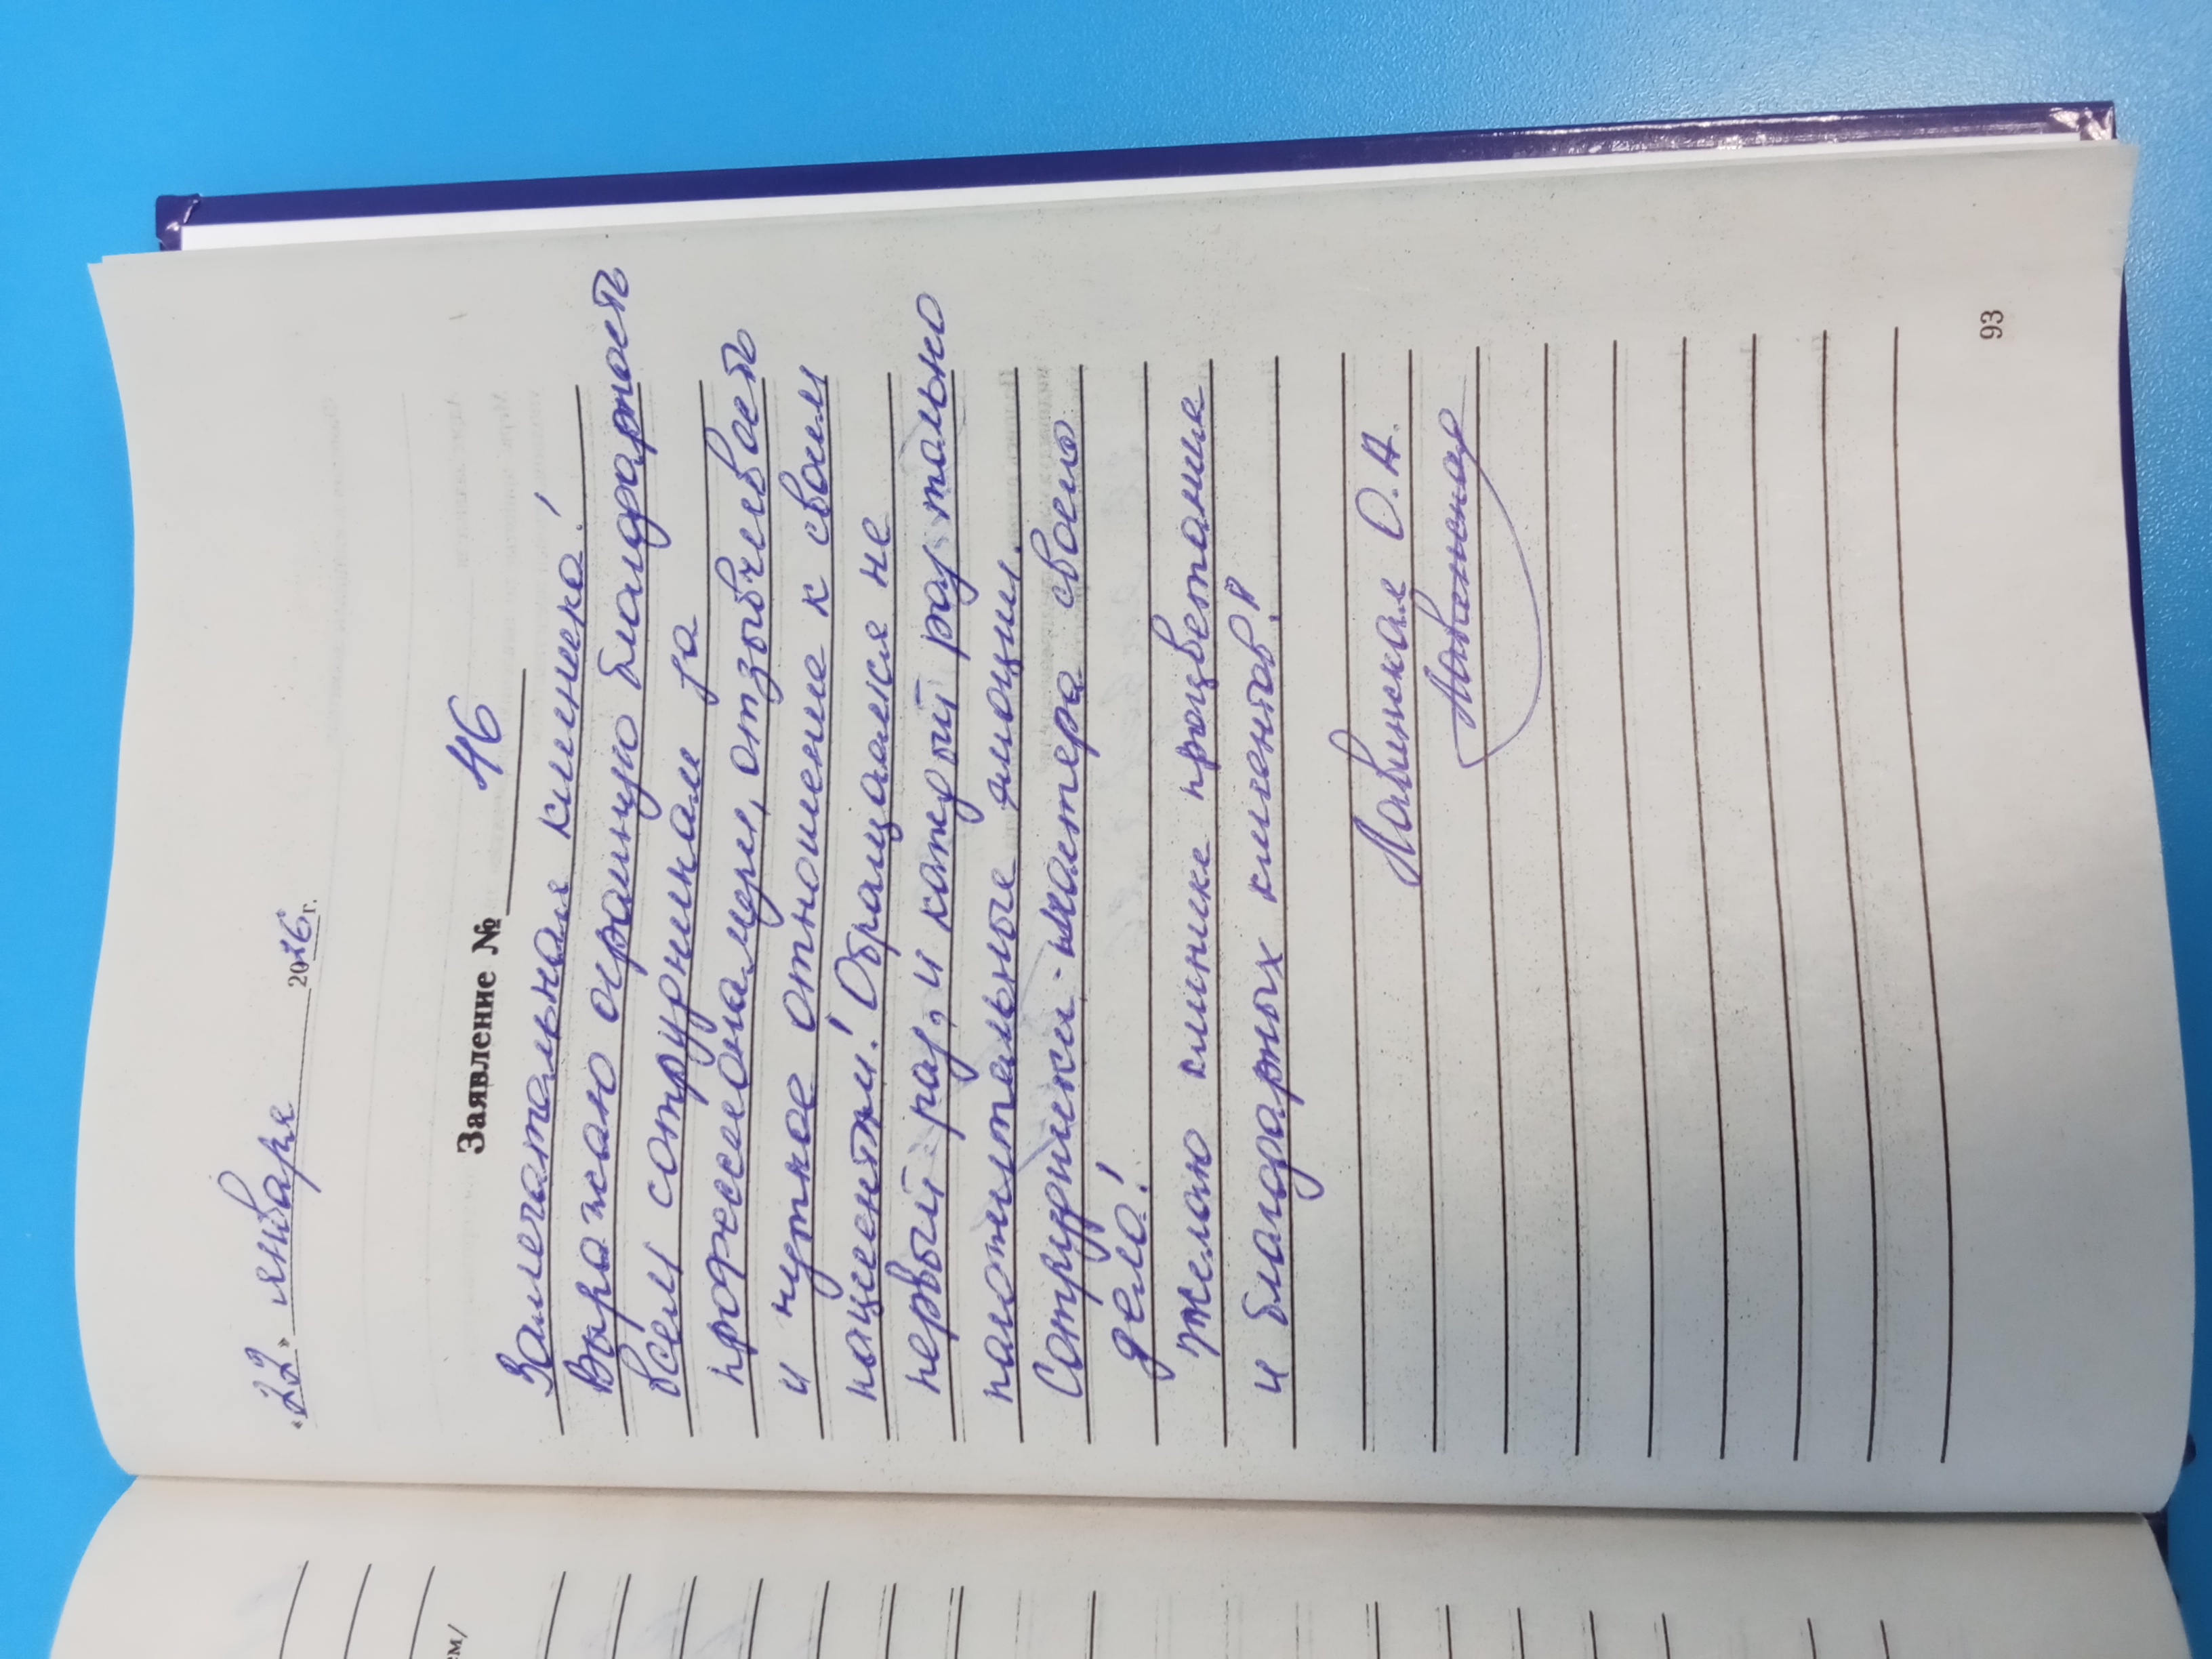 «22» января 2026г.
Заявление № 46
Замечательная клиника!
Выражаю огромную благодарность
всем сотрудникам за
профессионализм, отзывчивость
и чуткое отношение к своим
пациентам! Обращаемся не
первый раз, и каждый раз только
положительные эмоции.
Сотрудники - мастера своего
дела!
Желаю клинике процветания
и благодарных клиентов!
Лавинская О.А.
93
ем/